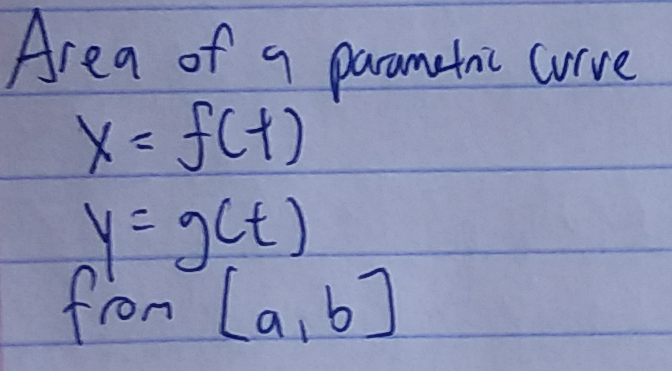 Area of a parametric curve
x = f(t)
y = g(t)
from [a, b]